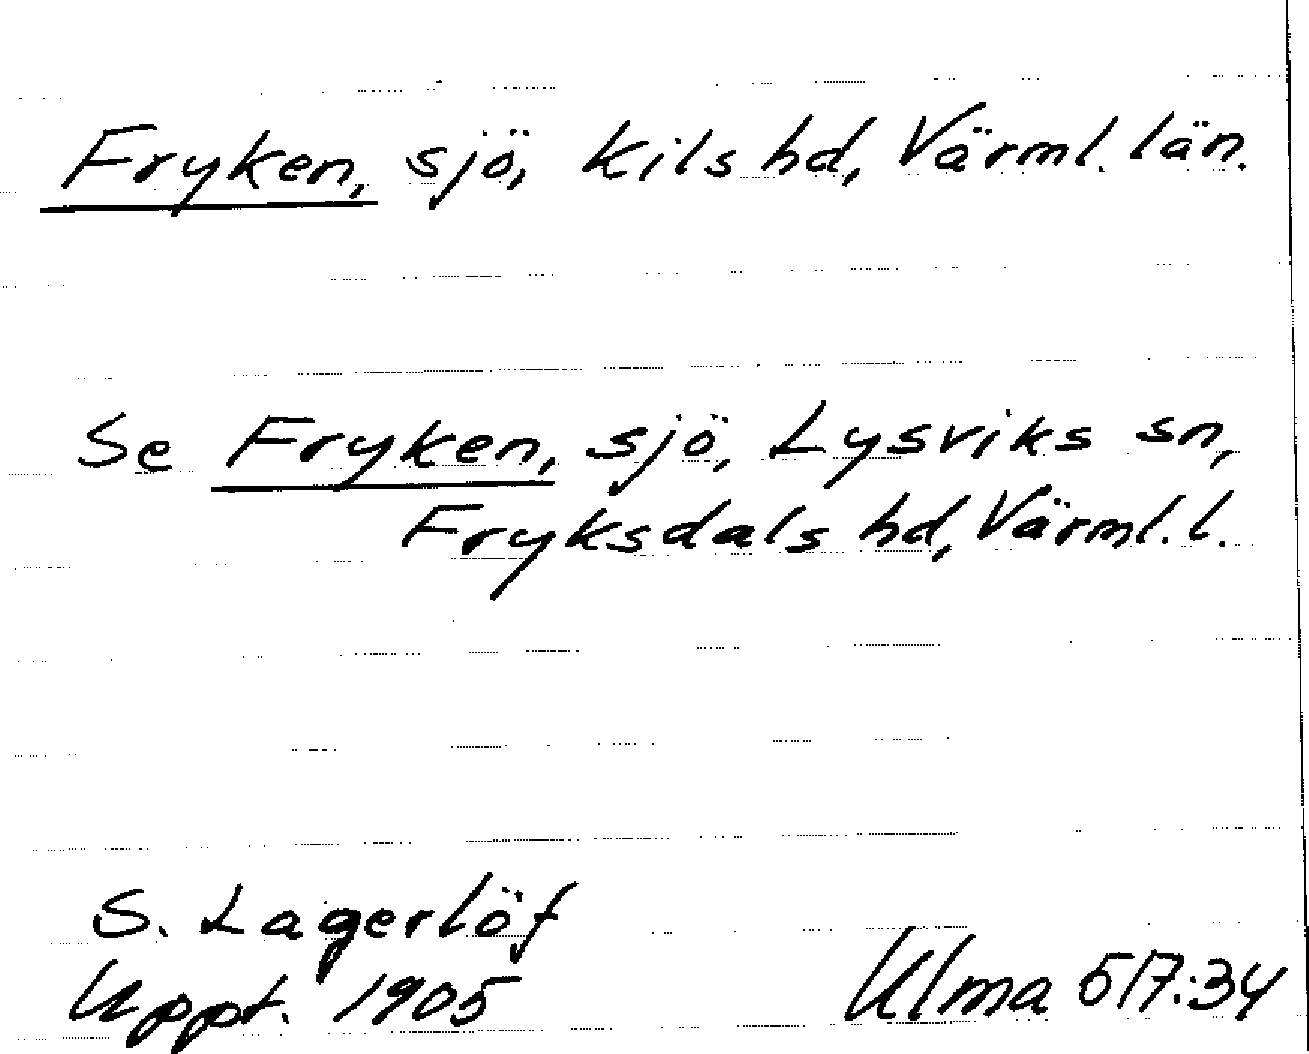 Fryken, sjö, Kils hd, Värml. län.
Se Fryken, sjö, Lysviks sn,
Fryksdals hd, Värml. l.
S. Lagerlöf
Uppt. 1905
Ulma 517:34